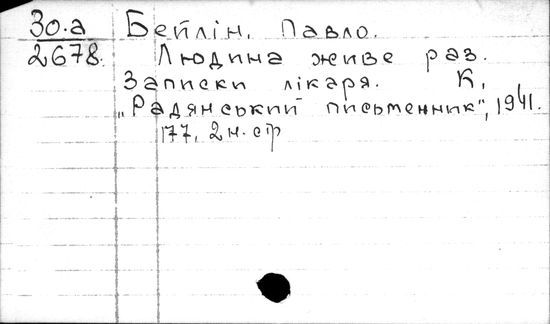 Зо.а
2678.
Бейлін, Павло.
Людина живе раз.
Записки лікаря. К,
„Радянський письменник", 1941.
177, 2 н. стр